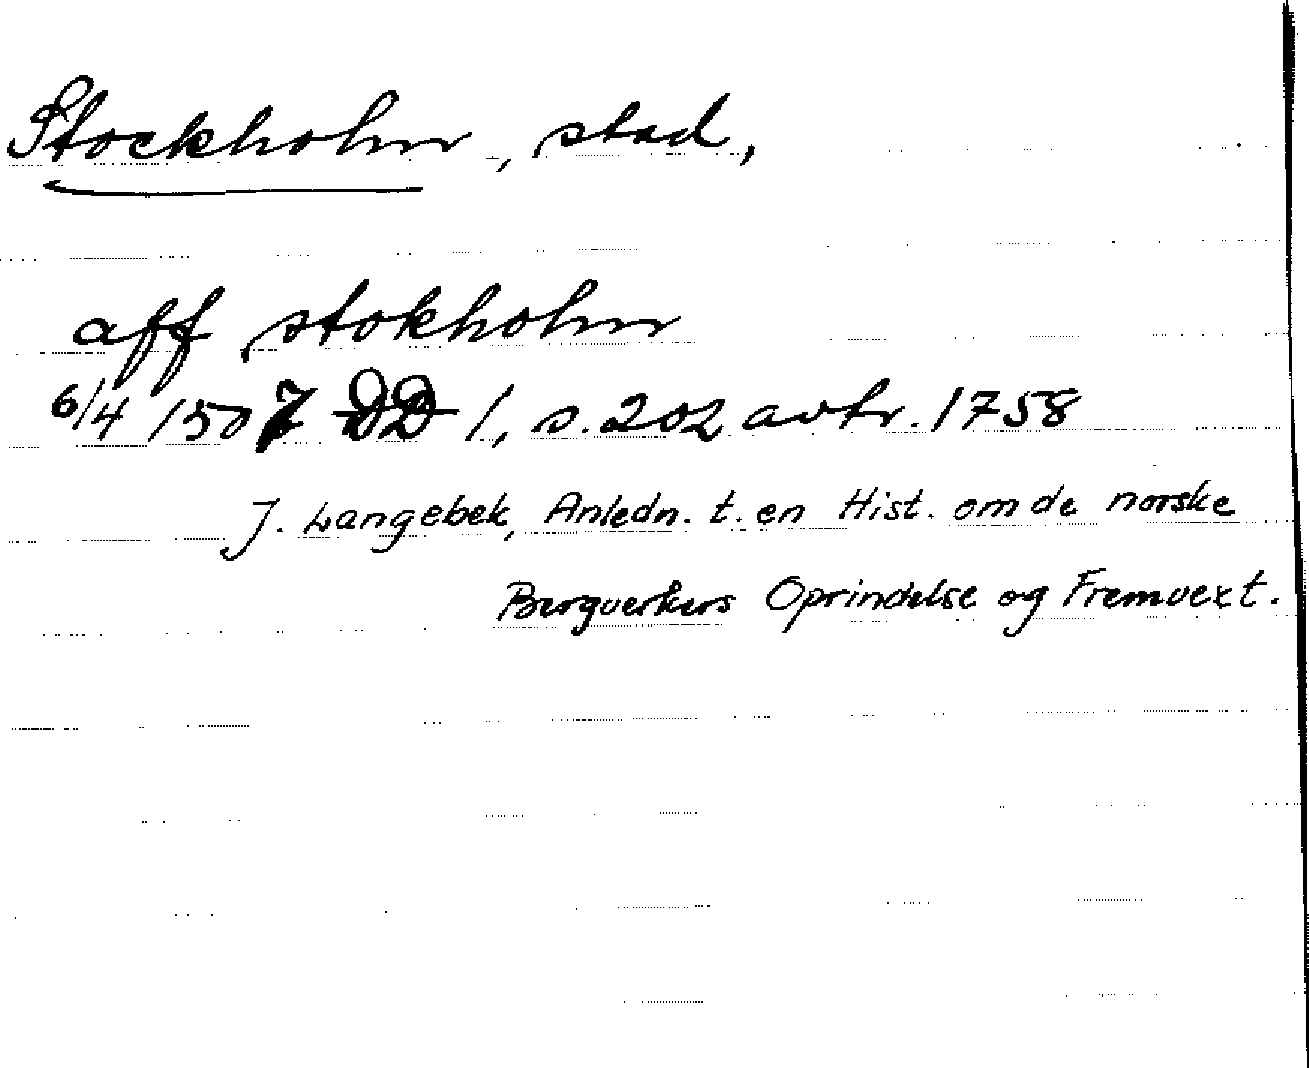 Stockholm, stad,
aff stokholm
6/4 1507 DD 1, s. 202 avtr. 1758
J. Langebek, Anledn. t. en Hist. om de norske
Bergverkers Oprindelse og Fremvext.